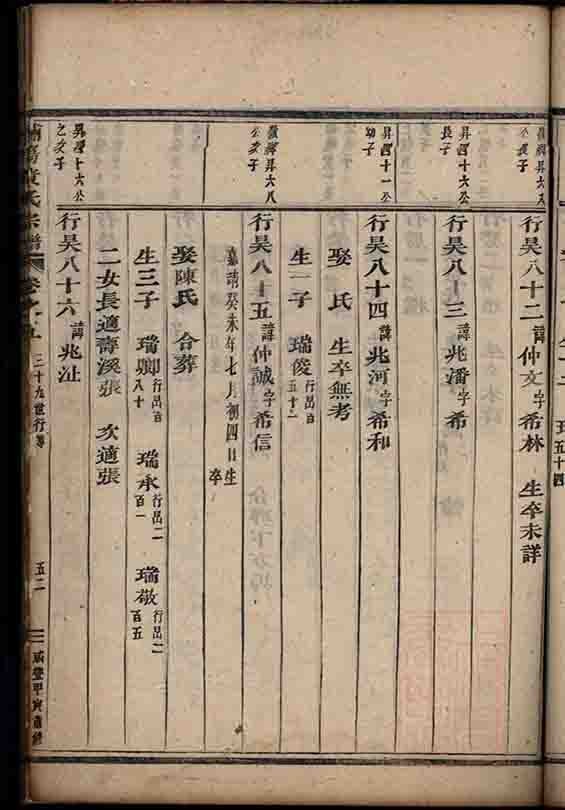 行昊八十二諱仲文字希林 生卒未詳
昇四十六公長子
行昊八十三諱兆潘字希
昇四十一公幼子
行昊八十四諱兆河字希和
娶 氏 生卒無考
生一子 瑞俊
行昊八十五諱仲誠字希信
嘉靖癸未年七月初四日生 卒
娶陳氏 合葬
生三子 瑞卿行昂百八十 瑞承行昂二百一 瑞敬行昂二百五
二女長適壽溪張 次適張
昇四十六公之次子
行昊八十六諱兆沚
氏宗譜 卷之五 三十九世行傳 五二 咸豐甲寅重修
五十四